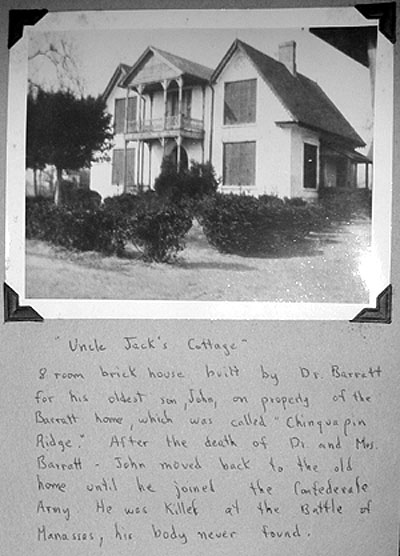 "Uncle Jack's Cottage"
8 room brick house built by Dr. Barratt
for his oldest son, John, on property of the
Barratt home, which was called "Chinquapin
Ridge." After the death of Dr. and Mrs.
Barratt - John moved back to the old
home until he joined the Confederate
Army. He was Killed at the Battle of
Manassas, his body never found.